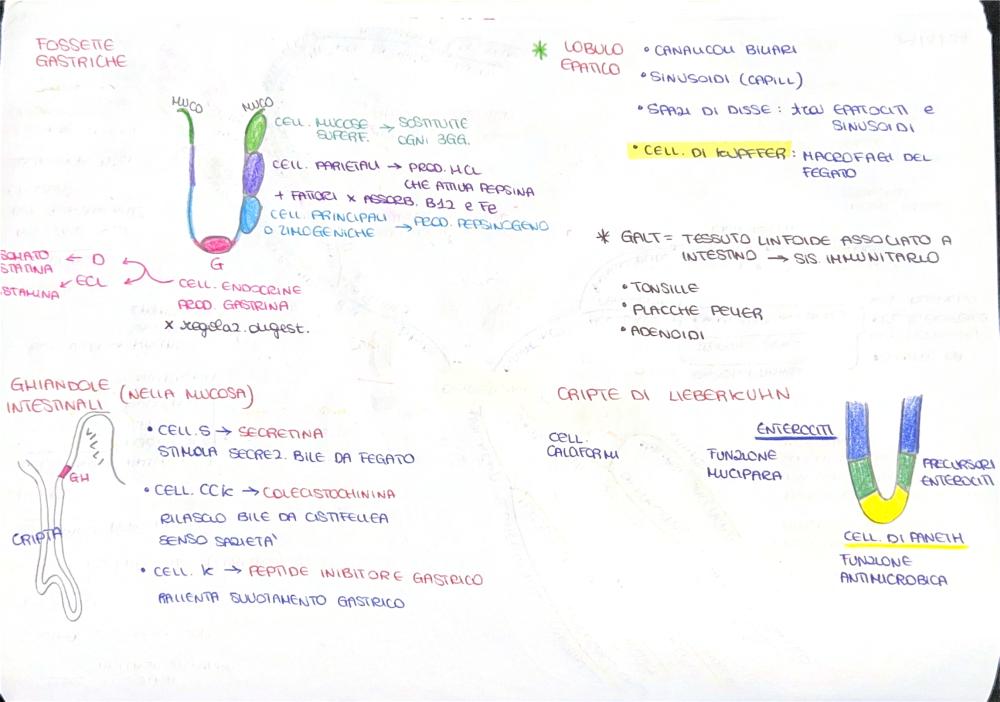 FOSSETTE
GASTRICHE
MUCO
MUCO
CELL. MUCOSE → SOSTITUITE
SUPERF. OGNI 3GG.
CELL. PARIETALI → PROD. HCL
CHE ATTIVA PEPSINA
+ FATTORI x ASSORB. B12 e Fe
CELL. PRINCIPALI → PROD. PEPSINOGENO
O ZIMOGENICHE
G
SOMATO ← D
STATINA
← ECL
STAMINA
CELL. ENDOCRINE
PROD. GASTRINA
x regolaz. digest.
* LOBULO
EPATICO
• CANALICOLI BILIARI
• SINUSOIDI (CAPILL)
• SPAZI DI DISSE : tra EPATOCITI e
SINUSOIDI
• CELL. DI KUPFFER : MACROFAGI DEL
FEGATO
* GALT = TESSUTO LINFOIDE ASSOCIATO A
INTESTINO → SIS. IMMUNITARIO
• TONSILLE
• PLACCHE PEYER
• ADENOIDI
GHIANDOLE (NELLA MUCOSA)
INTESTINALI
GH
CRIPTA
• CELL. S → SECRETINA
STIMOLA SECREZ. BILE DA FEGATO
• CELL. CCK → COLECISTOCHININA
RILASCIO BILE DA CISTIFELLEA
SENSO SAZIETA'
• CELL. K → PEPTIDE INIBITORE GASTRICO
RALLENTA SVUOTAMENTO GASTRICO
CRIPTE DI LIEBERKUHN
CELL.
CALCIFORMI
FUNZIONE
MUCIPARA
ENTEROCITI
PRECURSORI
ENTEROCITI
CELL. DI PANETH
FUNZIONE
ANTIMICROBICA